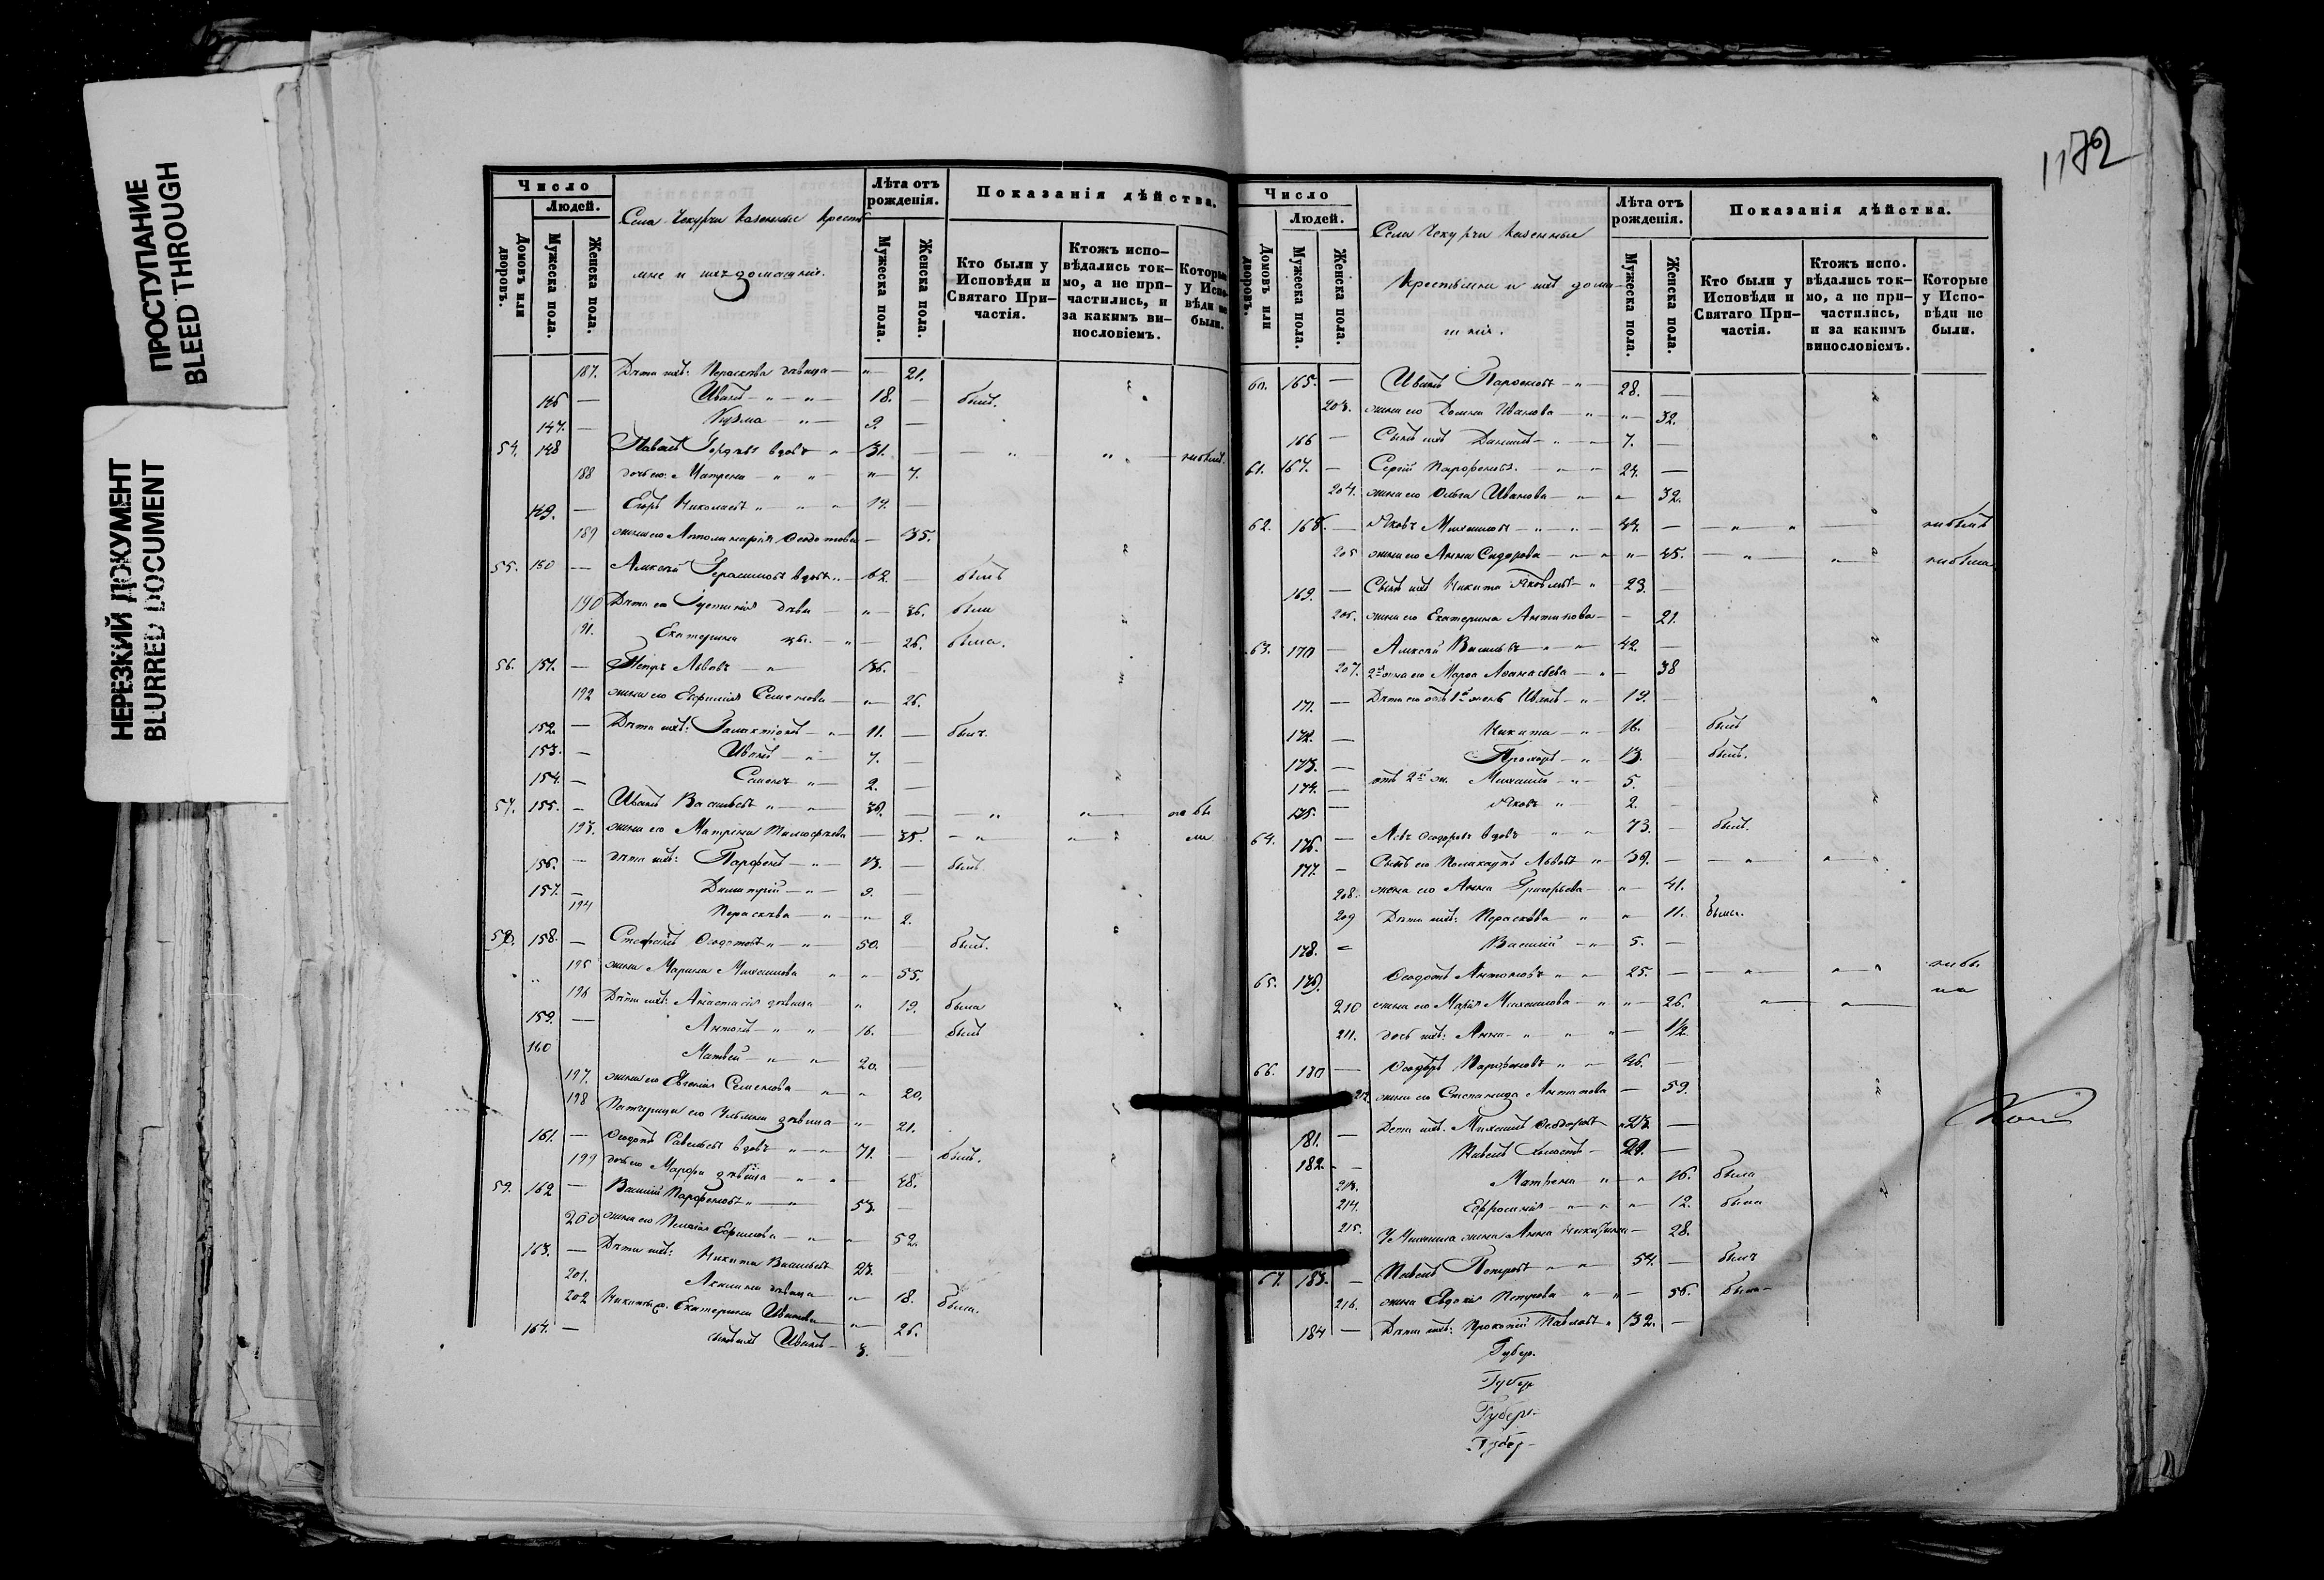 ПРОСТУПАНИЕ
BLEED THROUGH
НЕРЕЗКИЙ ДОКУМЕНТ
BLURRED DOCUMENT
Число
Людей.
Домовъ или дворовъ.
Мужеска пола.
Женска пола.
Села Чекурчи казенные крестья
не и ихъ домашніе.
Лѣта отъ рожденія.
Мужеска пола.
Женска пола.
Показанія дѣйства.
Кто были у Исповѣди и Святаго Причастія.
Ктожъ исповѣдались токмо, а не причастились, и за какимъ винословіемъ.
Которые у Исповѣди не были.
187. Дѣти ихъ: Параскѣва дѣвица — " — 21.
146 — Иванъ — " — " — 18. — былъ.
147. — Кузма — " — 9. —
54. 148 Павелъ вдовъ " — 31. — — " — " — небылъ.
188 дочь его Матрена — " — " — " — 7.
149. — Егоръ Николаевъ " — " — " 14. —
189 жена его Апполинарія Ѳедотова — 35.
55. 150 — Алексѣй Герасимовъ вдовъ " — 62. — былъ
190 Дѣти его Іустинія дѣви — " — 36. была
191. Екатерина дѣв. — " — 26. была.
56. 151. — Петръ Львовъ — " — 36. —
192 жена его Евфимія Семенова — " — 26.
152. — Дѣти ихъ: Галактіонъ — " — 11. — былъ.
153. — Иванъ — " — 7. —
154. — Семенъ — " — 2. —
57. 155. — Иванъ Васильевъ " — " — 39. — — " — " — не бы
193. жена его Матрена Тимофѣева — 35. — " — " — ли
156. — дѣти ихъ: Парфенъ — " — 13. — былъ
157. — Димитрій — " — 9. —
194 Параскѣва — " — " — 2.
58. 158. — Стефанъ Ѳедотовъ " — " — 50. — былъ.
195 жена Марина Михаилова " — " — 55.
196 Дѣти ихъ: Анастасія дѣвица — " — 19. была
159. — Антонъ — " — " — 16. — былъ
160 Матвей — " — " — 20. —
197. жена его Евгенія Семенова — " — " — 20.
198 Падчерица его Ульяна дѣвица — " — 21.
161. — Ѳедотъ вдовъ " — " — 71. — былъ.
199 дочь его Марфа дѣвица — " — " — 48.
59. 162 — Василій Парфеновъ " — " — 53. —
200 жена его Пелагія Ефимова — " — " — 52.
163. — Дѣти ихъ: Никита Васильевъ 23. —
201. Акилина дѣвица — " — 18. была.
202 Никиты ж. Екатерина Иванова — " — 26.
164. — сынъ ихъ Иванъ — 3. —
1172
Число
Людей.
Домовъ или дворовъ.
Мужеска пола.
Женска пола.
Села Чекурчи казенные
крестьяне и ихъ дома-
шніе.
Лѣта отъ рожденія.
Мужеска пола.
Женска пола.
Показанія дѣйства.
Кто были у Исповѣди и Святаго Причастія.
Ктожъ исповѣдались токмо, а не причастились, и за какимъ винословіемъ.
Которые у Исповѣди не были.
60. 165. — Иванъ Парфеновъ — " — 28. —
203. жена его Домна Иванова — " — " — 32.
166 — Сынъ ихъ Даніилъ — " — " — 7. —
61. 167. — Сергій Парфеновъ. — " — " — 24. —
204. жена его Ольга Иванова — " — " — 32.
62. 168. — Яковъ Михаиловъ — " — " — 44. — — " — " небылъ
205 жена его Анна Сидорова — " — " — 45. — " — " — небыла
169. — Сынъ ихъ Никита Яковлевъ — " 23. —
206. жена его Екатерина Антипова — — 21.
63. 170 — Алексѣй Васильевъ — " — 42. —
207. 2я жена его Марѳа Аѳанасьева — " — 38
171. — Дѣти его отъ 1й жены Иванъ — " — 19. —
172. — Никита — " — 16. — былъ
173. — Прохоръ — " — 13. — былъ.
174. — отъ 2й ж. Михаилъ — " — 5. —
175. — Яковъ " — 2. —
64. 176. — Левъ Ѳедоровъ вдовъ " — " — 73. — былъ.
177. — Сынъ его Поликарпъ Львовъ — " — 39. — — " — " — "
208. жена его Анна Григорьева — " — 41.
209 Дѣти ихъ: Параскѣва — " — " — 11. была.
178. — Василій — " — 5. —
65. 179. Ѳедотъ Антоновъ " — " — 25. — — " — " — " небы
ла
210 жена его Марія Михаилова — " — " — 26. " — " —
211. дочь ихъ: Анна — " — " — " — 1/2.
66. 180 — Ѳедоръ Парфеновъ " — " — 46. —
212. жена его Степанида Антипова — 59.
181. — Дети ихъ. Михаилъ Ѳедоровъ — 27. —
182. — Павелъ холостъ — 21. —
213. Матрена — " — " — 16. была
214. Евфросинія — " — " — " — 12. была
215. У Михаила жена Анна — 28.
67. 183. — Павелъ Петровъ — " — " — 54. — былъ
216. жена Евдокія Петрова — " — " — 56. была —
184 — Дѣти ихъ: Прокопій Павловъ " 32. —
Губер.
Губер
Губер.
Губер —